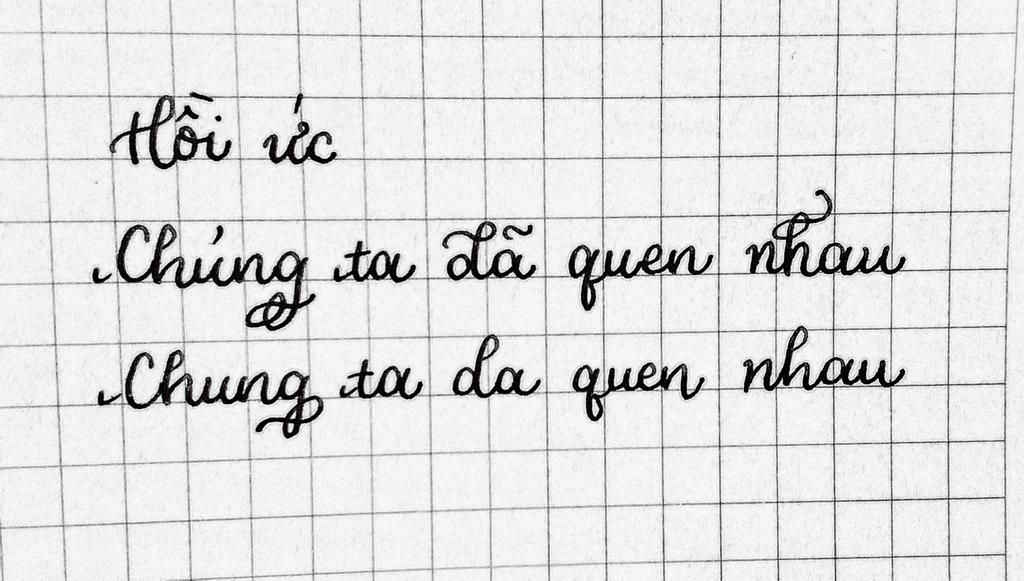 Hồi ức
Chúng ta đã quen nhau
Chung ta da quen nhau